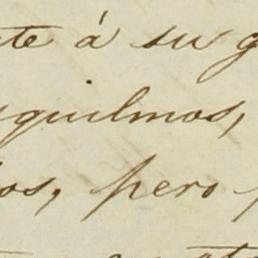 te á su g
squilmos,
os, pero